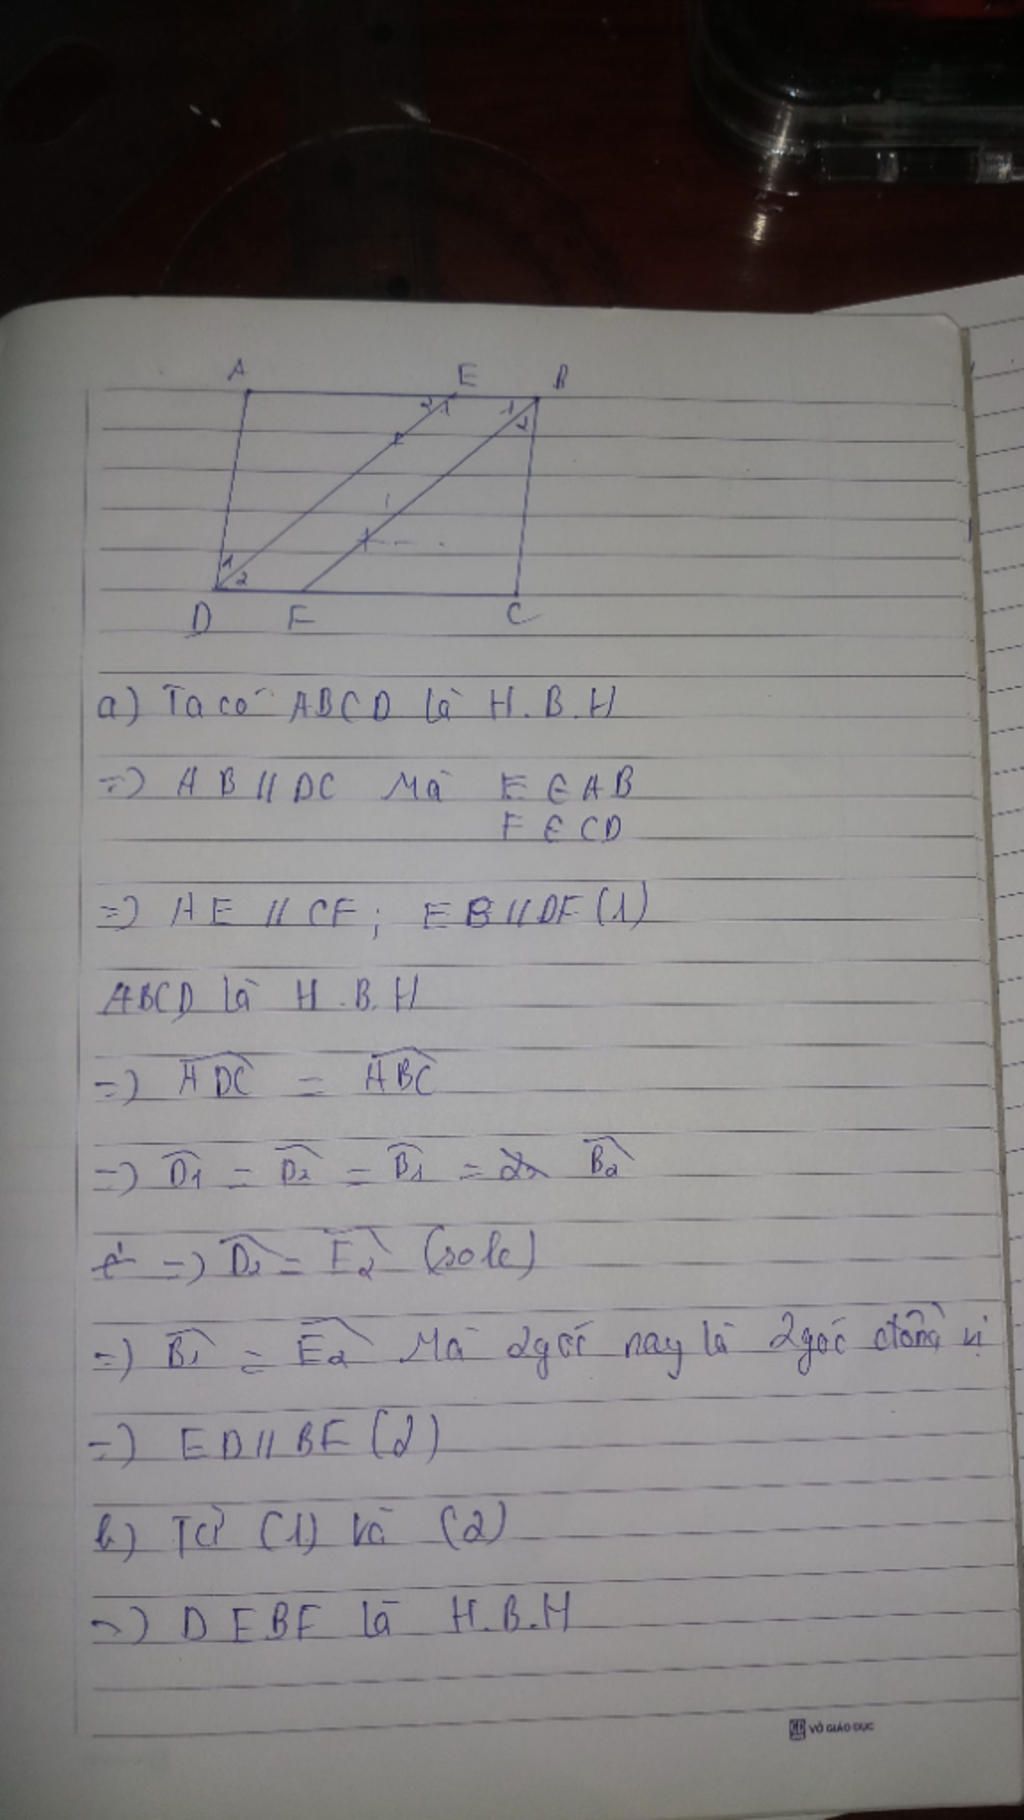 A E B
2 1 1
2
1
2
D F C
a) Ta có ABCD là H.B.H
=> AB // DC Mà E ∈ AB
F ∈ CD
=> AE // CF ; EB // DF (1)
ABCD là H.B.H
=> ADC = ABC
=> D1 = D2 = B1 = B2
=> D2 = E2 (sole)
=> B1 = E2 Mà 2 góc nay là 2 góc đồng vị
=> ED // BF (2)
b) Từ (1) và (2)
=> DEBF là H.B.H
VỞ GIÁO DỤC